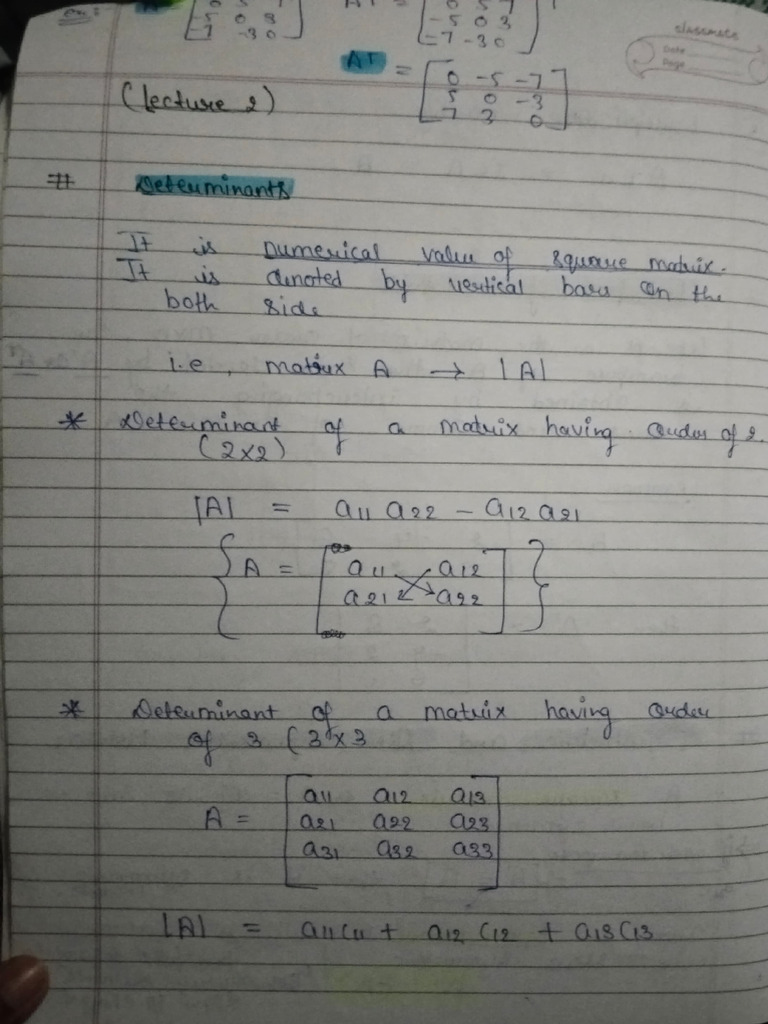 0 5 7
[-5 0 3]
-7 -3 0
AT =
0 5 7
[-5 0 3]
-7 -3 0
classmate
Date
Page
AT = [0 -5 -7
5 0 -3
7 3 0]
(lecture 2)
# Determinants
It is numerical value of square matrix.
It is denoted by vertical bars on the
both side
i.e, matrix A → |A|
* Determinant of a matrix having order of 2.
(2×2)
|A| = a11 a22 - a12 a21
{A = [a11 a12
a21 a22]}
* Determinant of a matrix having order
of 3 (3×3
A = [a11 a12 a13
a21 a22 a23
a31 a32 a33]
|A| = a11C11 + a12 C12 + a13C13